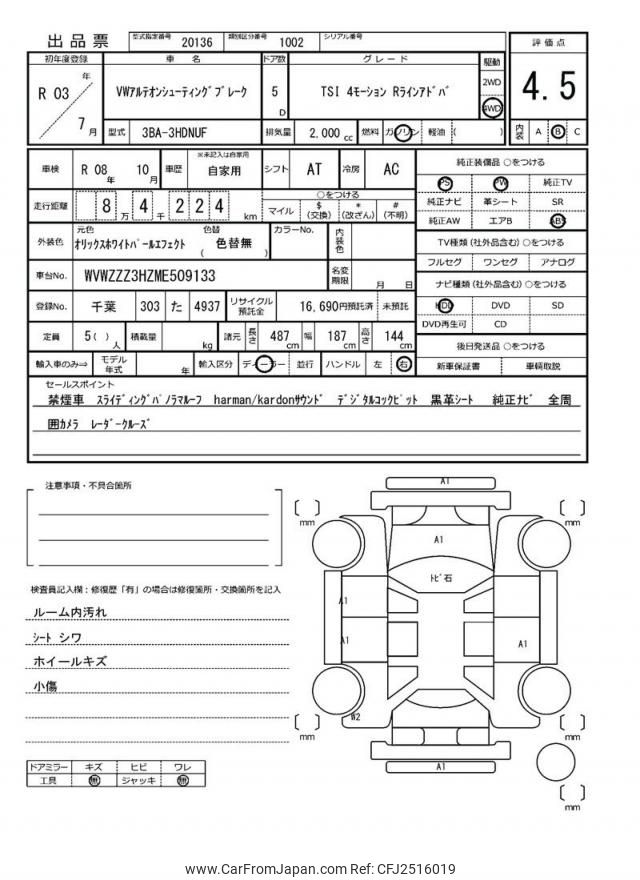 出品票 型式指定番号 20136 類別区分番号 1002 シリアル番号
初年度登録 車 名 ドア数 グレード 駆動 評価点
R 03 年 7 月 VWアルテオンシューティングブレーク 5 D TSI 4モーション Rラインアドバ 2WD 4WD 4.5
型式 3BA-3HDNUF 排気量 2,000 cc 燃料 ガソリン 軽油 ( ) 内装 A B C
車検 R 08 年 10 月 車歴 ※未記入は自家用 自家用 シフト AT 冷房 AC
走行距離 8 万 4 千 2 2 4 km ○をつける マイル $ (交換) * (改ざん) # (不明)
外装色 元色 オリックスホワイトパールエフェクト 色替 ( 色替無 ) カラーNo. 内装色
車台No. WVWZZZ3HZME509133 名変期限 月 日
登録No. 千葉 303 た 4937 リサイクル預託金 16,690円預託済 未預託
定員 5 ( ) 人 積載量 kg 諸元 長さ 487 cm 幅 187 cm 高さ 144 cm
輸入車のみ⇒ モデル年式 年 輸入区分 ディーラー 並行 ハンドル 左 右
純正装備品 ○をつける
PS PW 純正TV
純正ナビ 革シート SR
純正AW エアB ABS
TV種類 (社外品含む) ○をつける
フルセグ ワンセグ アナログ
ナビ種類 (社外品含む) ○をつける
HDD DVD SD
DVD再生可 CD
後日発送品 ○をつける
新車保証書 車輌取説
セールスポイント
禁煙車 スライディングパノラマルーフ harman/kardonサウンド デジタルコックピット 黒革シート 純正ナビ 全周
囲カメラ レーダークルーズ
注意事項・不具合箇所
検査員記入欄:修復歴「有」の場合は修復箇所・交換箇所を記入
ルーム内汚れ
シート シワ
ホイールキズ
小傷
ドアミラー キズ ヒビ ワレ
工具 無 ジャッキ 無
A1
mm
mm
A1
トビ石
A1
A1
A1
W2
mm
mm
A1
mm
www.CarFromJapan.com Ref: CFJ2516019